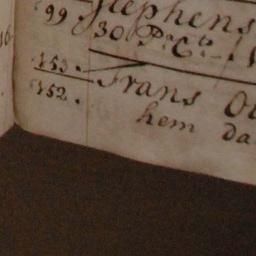 99 Stephens
30 P.r C.t
153.
152. Frans
hem da